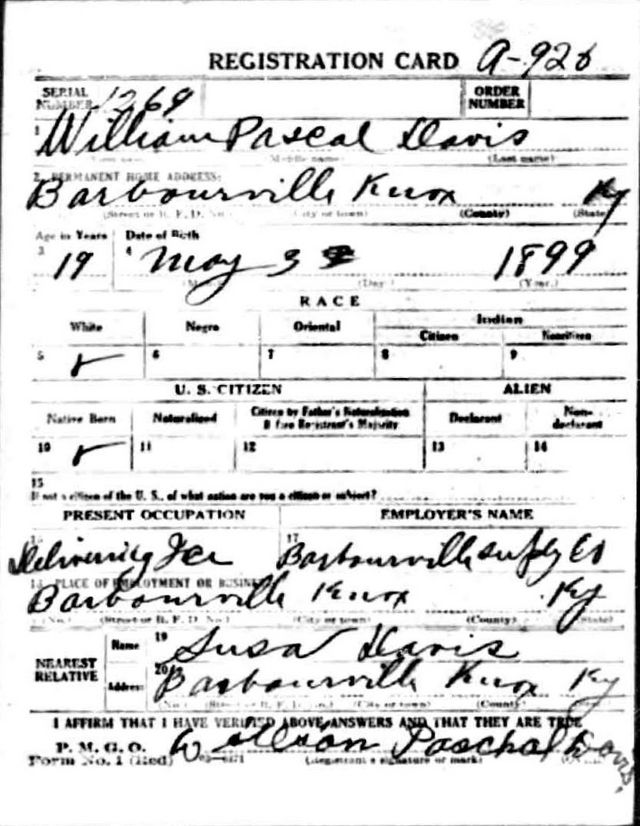 REGISTRATION CARD A-926
SERIAL NUMBER 1269 ORDER NUMBER
1 William Pascal Davis
(Middle name) (Last name)
2. PERMANENT HOME ADDRESS:
Barbourville Knox Ky
(Street or R. F. D. No.) (City or town) (County) (State)
Age in Years Date of Birth
3 19 4 May 3 1899
(Day) (Year)
RACE
White Negro Oriental Indian
Citizen Noncitizen
5 ✓ 6 7 8 9
U. S. CITIZEN ALIEN
Native Born Naturalized Citizen by Father's Naturalization Before Registrant's Majority Declarant Non-declarant
10 ✓ 11 12 13 14
15
If not a citizen of the U. S., of what nation are you a citizen or subject?
PRESENT OCCUPATION EMPLOYER'S NAME
17
Delivering Ice Barbourville Supply Co
PLACE OF EMPLOYMENT OR BUSINESS
Barbourville Knox Ky
(No.) (Street or R. F. D. No.) (City or town) (County) (State)
NEAREST RELATIVE Name 19 Susa Davis
Address 20 Barbourville Knox Ky
(No.) (City or town) (County)
I AFFIRM THAT I HAVE VERIFIED ABOVE ANSWERS AND THAT THEY ARE TRUE
P. M. G. O.
Form No. 1 (Red) William Paschal Davis
(Registrant's signature or mark)